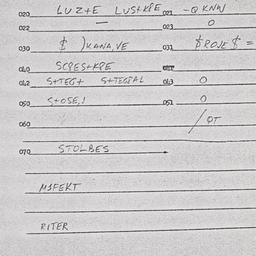 020 LUZ+E LUS+KPE 021 -O KNW
022 — 023 O
030 $ )KANA,VE 031 $ROJE $ =
040 SCPES+KPE
042 S+TEG+ S+TEGPAL 043 O
050 S+OSE,! 051 O
060 /OT
070 STOLBES
MIFEKT
RITER